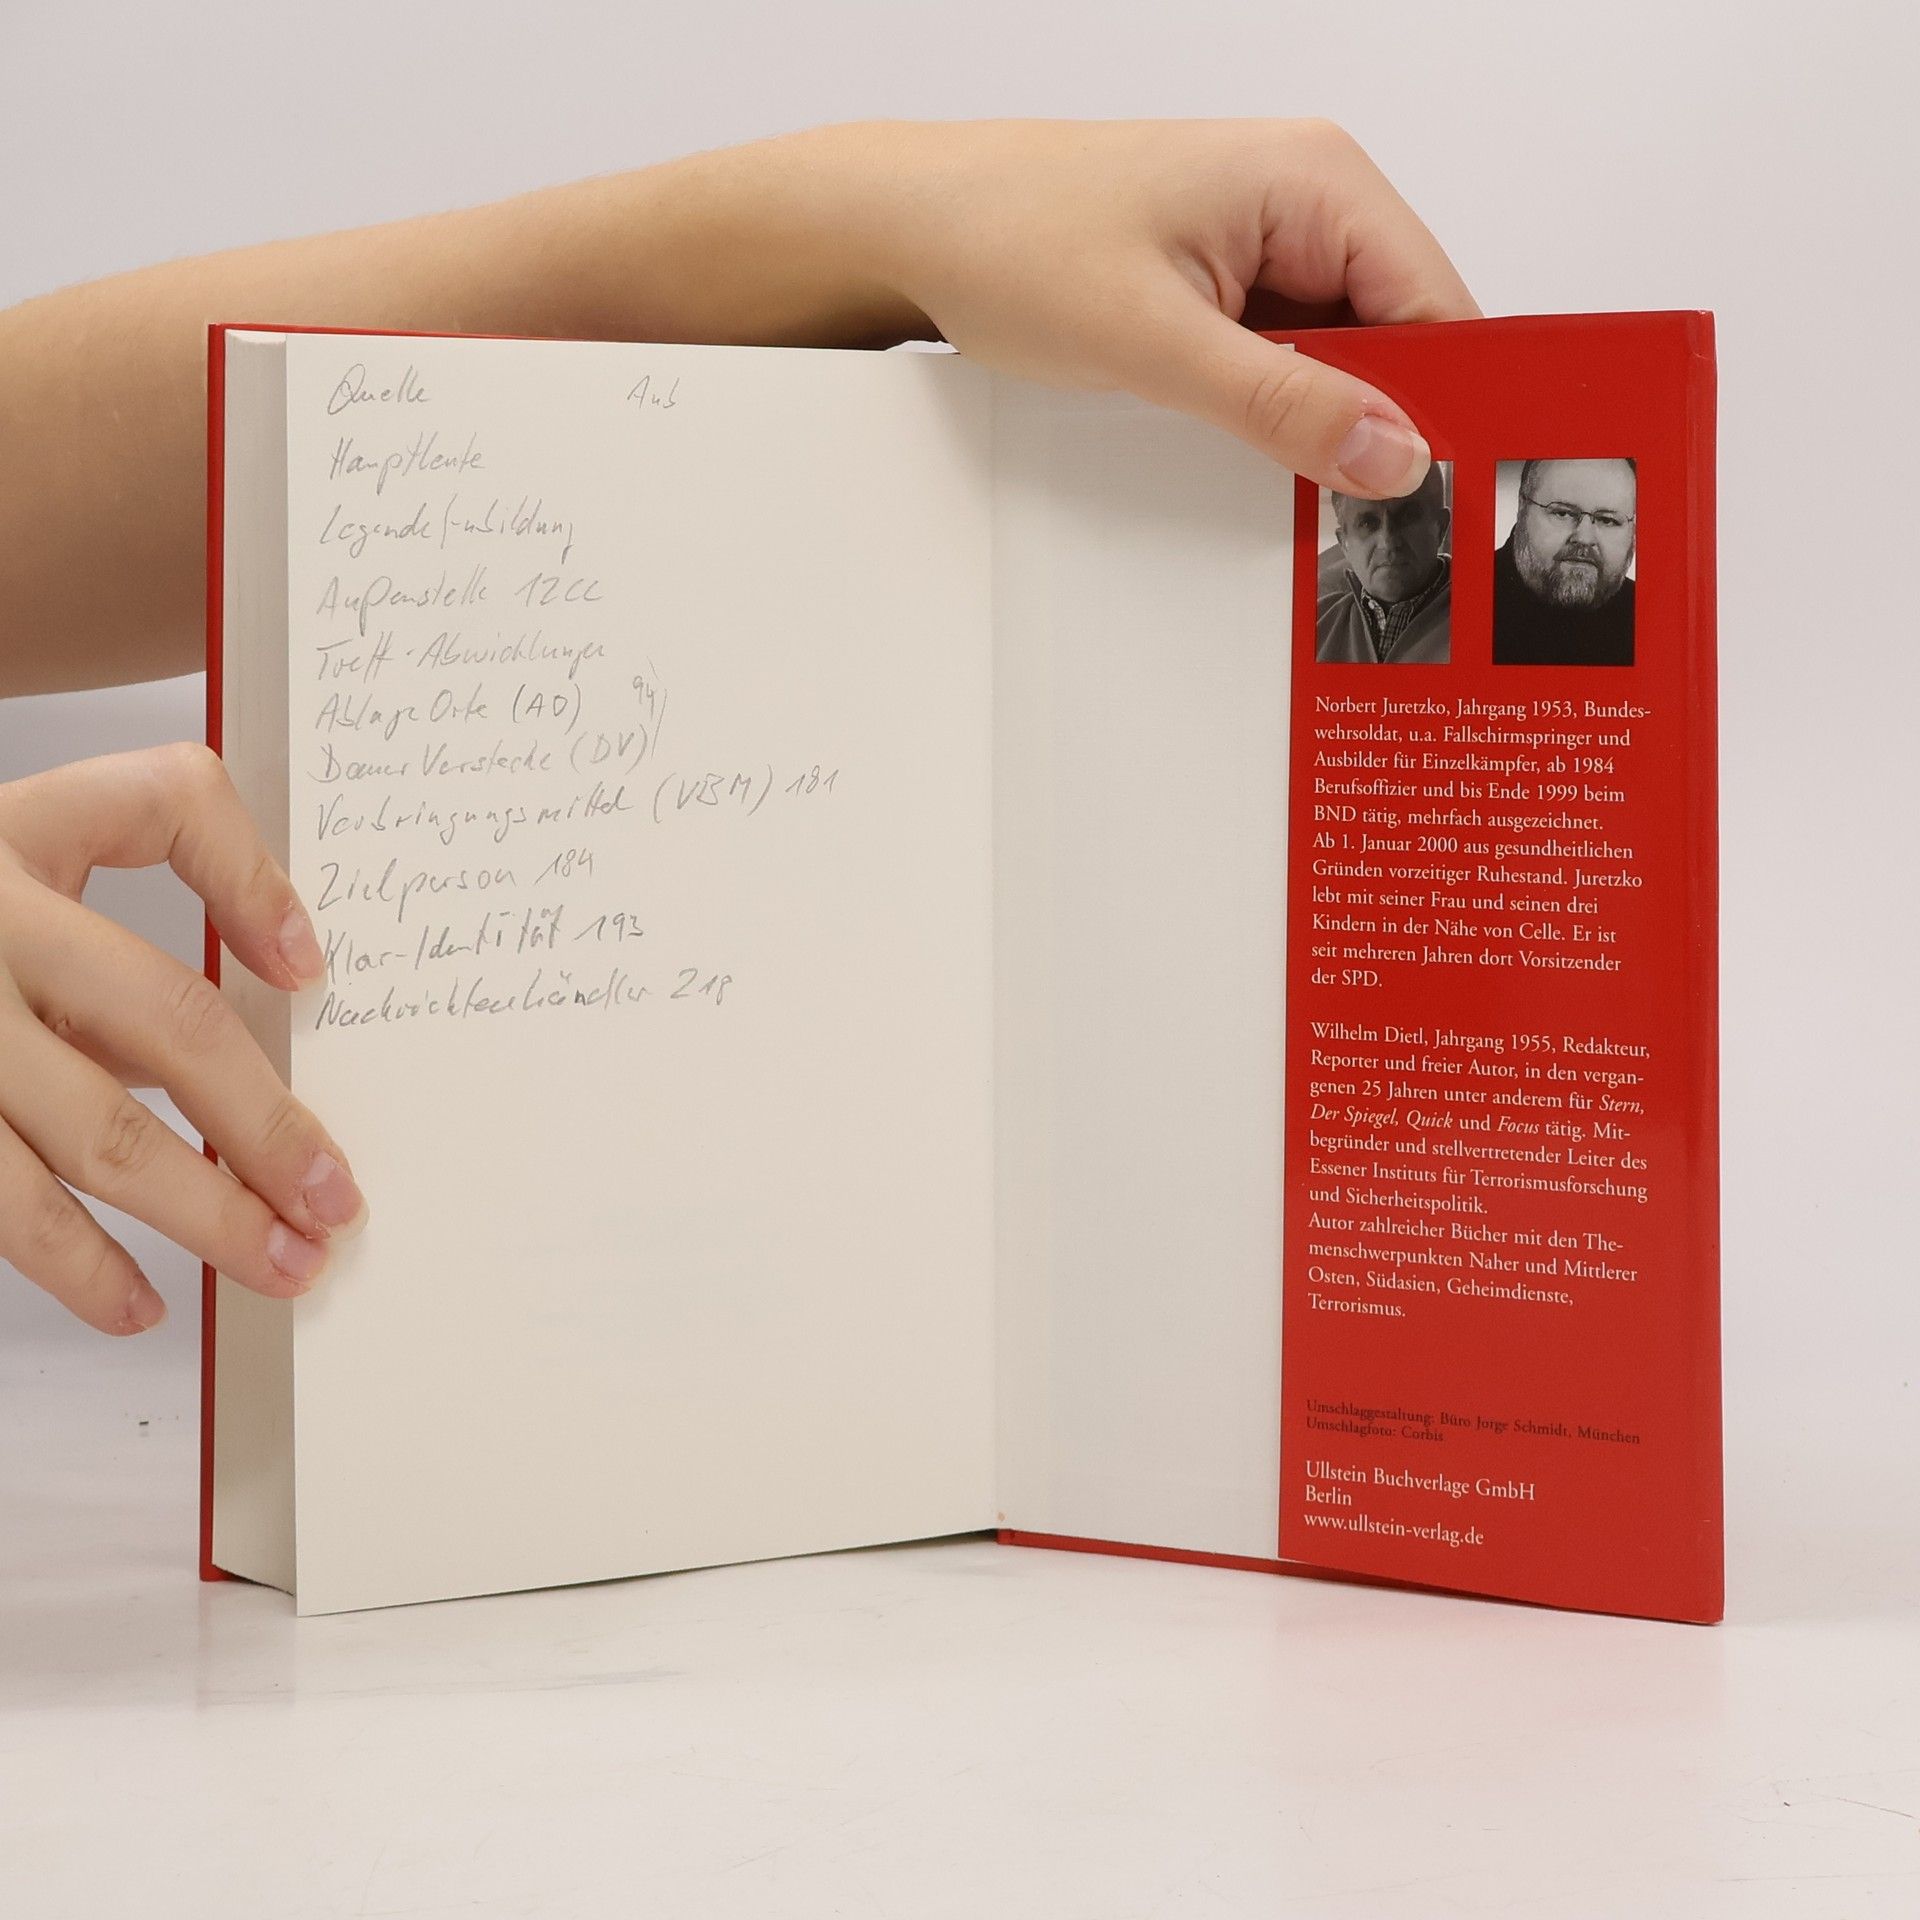 Quelle Aub
Hauptleute
Legende
Außenstelle 12CC
Treff-Abwicklungen
Ablage Orte (AO) 94
Dauer Verstecke (DV)
Verbringungsmittel (VBM) 181
Zielperson 184
Klar-Identität 193
Nachrichtenhändler 218
Norbert Juretzko, Jahrgang 1953, Bundes-
wehrsoldat, u.a. Fallschirmspringer und
Ausbilder für Einzelkämpfer, ab 1984
Berufsoffizier und bis Ende 1999 beim
BND tätig, mehrfach ausgezeichnet.
Ab 1. Januar 2000 aus gesundheitlichen
Gründen vorzeitiger Ruhestand. Juretzko
lebt mit seiner Frau und seinen drei
Kindern in der Nähe von Celle. Er ist
seit mehreren Jahren dort Vorsitzender
der SPD.
Wilhelm Dietl, Jahrgang 1955, Redakteur,
Reporter und freier Autor, in den vergan-
genen 25 Jahren unter anderem für Stern,
Der Spiegel, Quick und Focus tätig. Mit-
begründer und stellvertretender Leiter des
Essener Instituts für Terrorismusforschung
und Sicherheitspolitik.
Autor zahlreicher Bücher mit den The-
menschwerpunkten Naher und Mittlerer
Osten, Südasien, Geheimdienste,
Terrorismus.
Umschlaggestaltung: Büro Jorge Schmidt, München
Umschlagfoto: Corbis
Ullstein Buchverlage GmbH
Berlin
www.ullstein-verlag.de